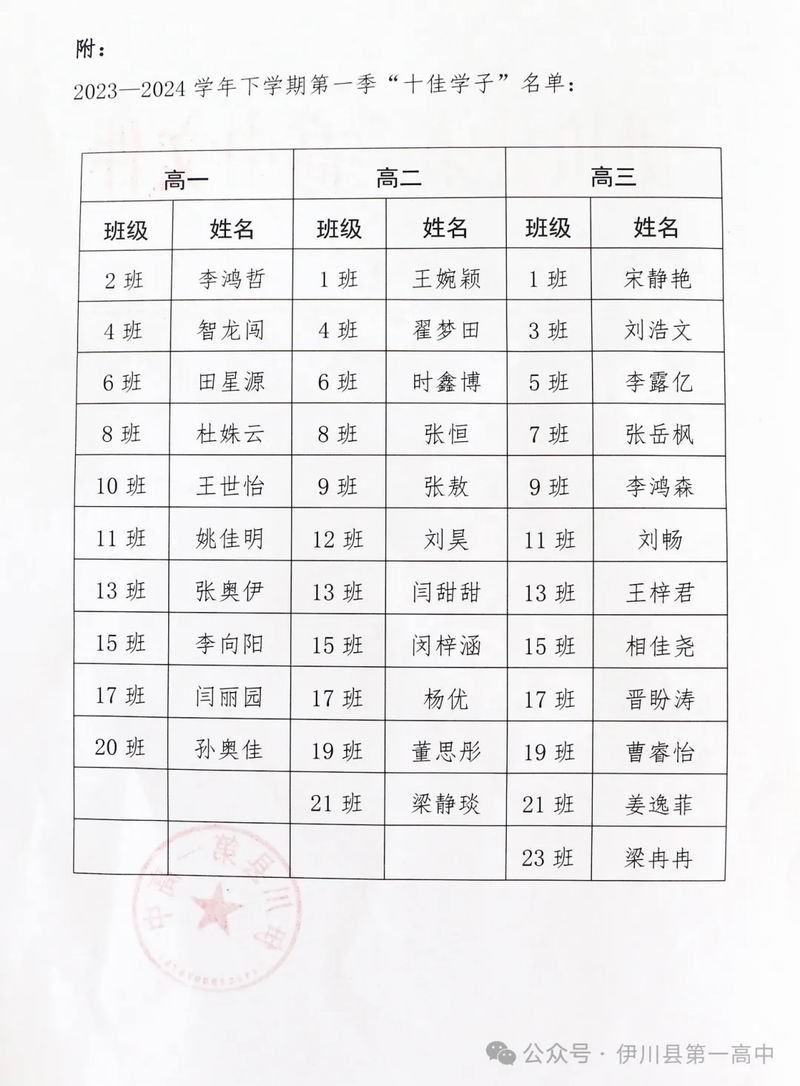 附：
2023—2024 学年下学期第一季“十佳学子”名单：
高一 高二 高三
班级 姓名 班级 姓名 班级 姓名
2 班 李鸿哲 1 班 王婉颖 1 班 宋静艳
4 班 智龙闯 4 班 翟梦田 3 班 刘浩文
6 班 田星源 6 班 时鑫博 5 班 李露亿
8 班 杜姝云 8 班 张恒 7 班 张岳枫
10 班 王世怡 9 班 张敖 9 班 李鸿森
11 班 姚佳明 12 班 刘昊 11 班 刘畅
13 班 张奥伊 13 班 闫甜甜 13 班 王梓君
15 班 李向阳 15 班 闵梓涵 15 班 相佳尧
17 班 闫丽园 17 班 杨优 17 班 晋盼涛
20 班 孙奥佳 19 班 董思彤 19 班 曹睿怡
21 班 梁静琰 21 班 姜逸菲
23 班 梁冉冉
伊川县第一高中
公众号·伊川县第一高中